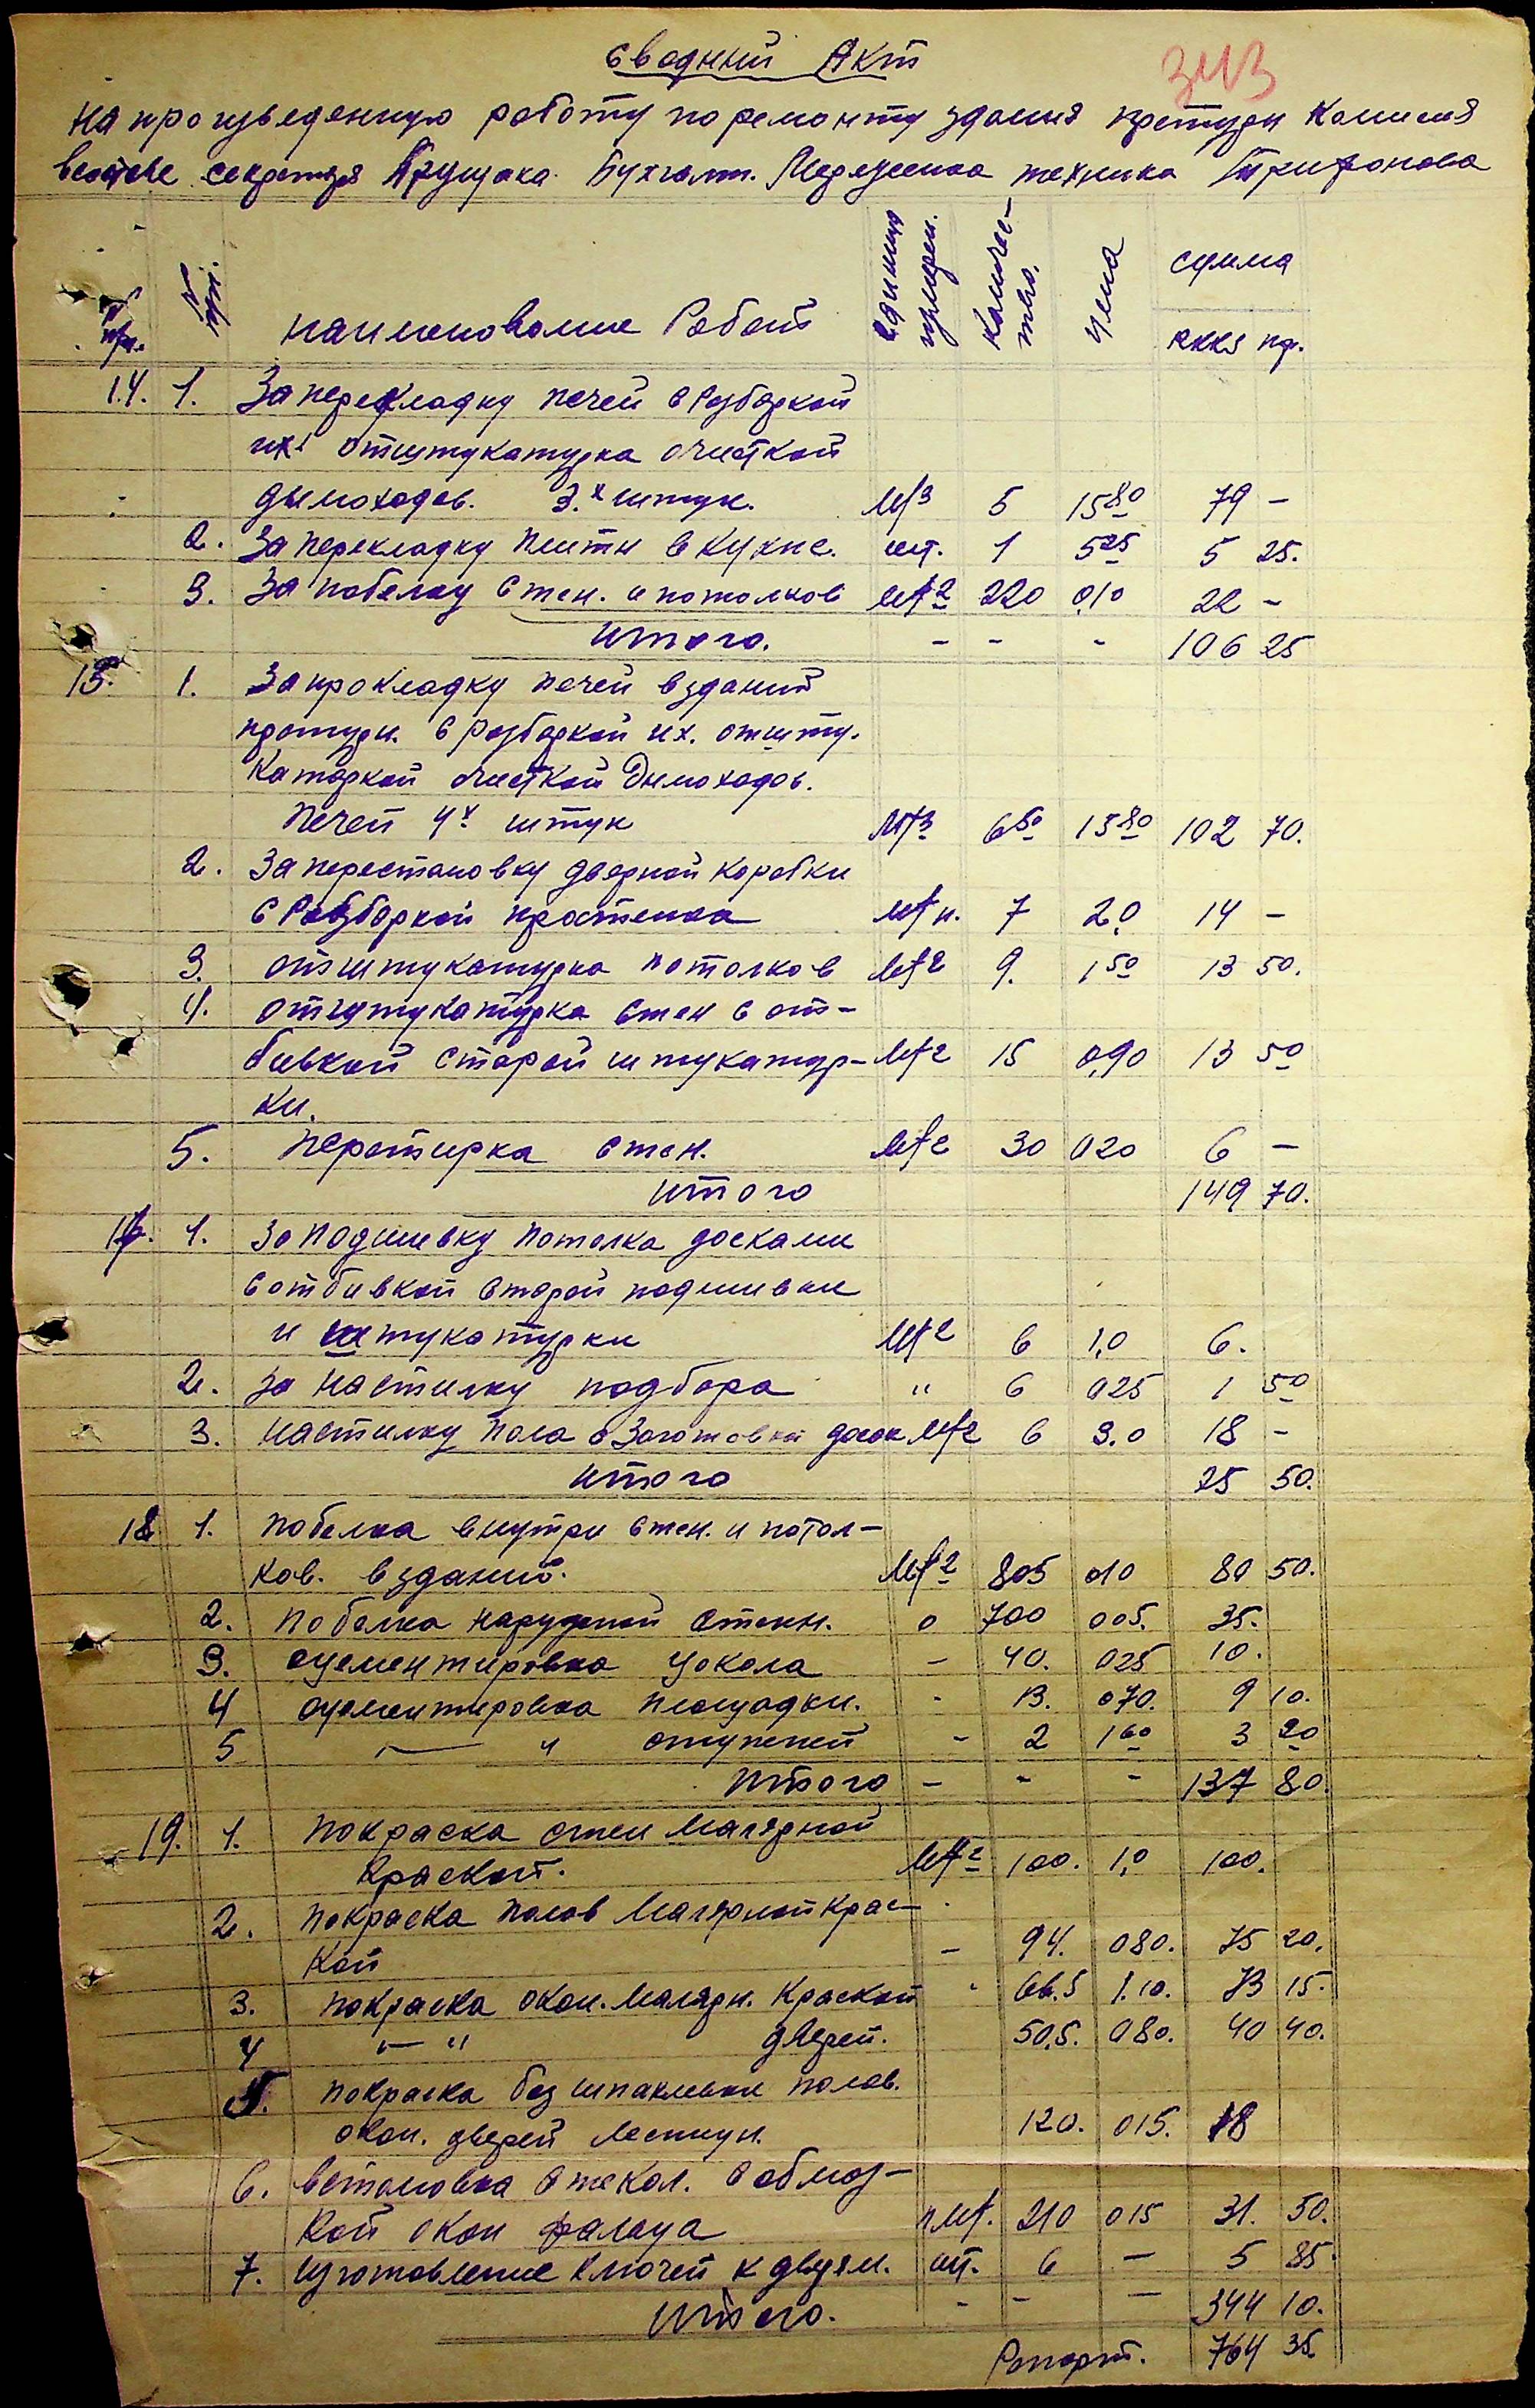 сводний Акт
343
на произведенную работу по ремонту здания претуры Комисия
в составе секретаря Бухгалт. техника Трифонова
№
№ пп.
наименование Работ
единица измерен.
количес-тво.
цена
сумма
RKKS пф.
14. 1. За перекладку печей с Разборкой
их отштукатурка очисткой
дымоходов. 3.х штук. М3 5 15 80 79 –
2. За перекладку плиты в кухне. шт. 1 5 25 5 25.
3. За побелку стен. и потолков М2 220 0,10 22 –
Итого. – – - 106 25
15. 1. За прокладку печей в зданий
претуры. с разборкой их. отшту-
каторкой очисткой Дымоходов.
печей 4х штук М3 6 50 15 80 102 70.
2. За перестановку дверной коробки
с Разборкой простенка М п. 7 2,0 14 –
3. отштукатурка потолков М2 9. 1 50 13 50.
4. отштукатурка стен с от-
бивкой старой штукатур- М2 15 0,90 13 50
ки.
5. перетирка стен. М2 30 020 6 –
итого 149 70.
16. 1. За подшивку потолка досками
с отбивкой старой подшивки
и штукатурки М2 6 1,0 6.
2. за настилку подбора " 6 025 1 50
3. настилку пола с Заготовкой досок М2 6 3.0 18 –
итого 25 50.
18 1. побелка внутри стен. и потол-
ков. в зданий. М2 805 010 80 50.
2. побелка наружной стены. 700 005. 35.
3. оцементировка цокола – 40. 025 10.
4 оцементировка площадки. - 13. 070. 9 10.
5 — " ступеней - 2 1 60 3 20
Итого – - - 137 80.
19. 1. покраска стен малярной
краской. М2 100. 1,0 100.
2. покраска полов Малярной крас-
кой – 94. 080. 75 20.
3. покраска окон. малярн. краской 66.5 1.10. 73 15.
4 — " дверей. 50,5. 080. 40 40.
5. покраска без шпаклевки полов.
окон. дверей лестниц. 120. 015. 18
6. встановка стекол. с обмаз-
кой окон фальца п М. 210 015 31. 50.
7. изготовление ключей к дверям. шт. 6 — 5 85
Итого. - – — 344 10.
Рапорт. 764 35.